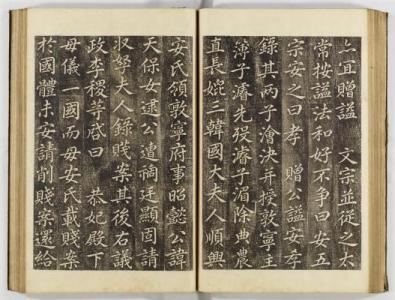 宜贈謚 文宗並從之太
常按謚法和好不争曰安五
宗安之曰孝 贈公謚安孝
錄其兩子澮決并授敦寧主
薄子濬先殁濬子湄除典農
直長嫓三韓國大夫人順興
安氏領敦寧府事昭懿公諱
天保女逮公遭禍廷顯固請
収孥夫人錄賤案其後右議
政李稷等啓曰 恭妃殿下
母儀一國而母安氏載賤案
於國體未安請削賤案還給